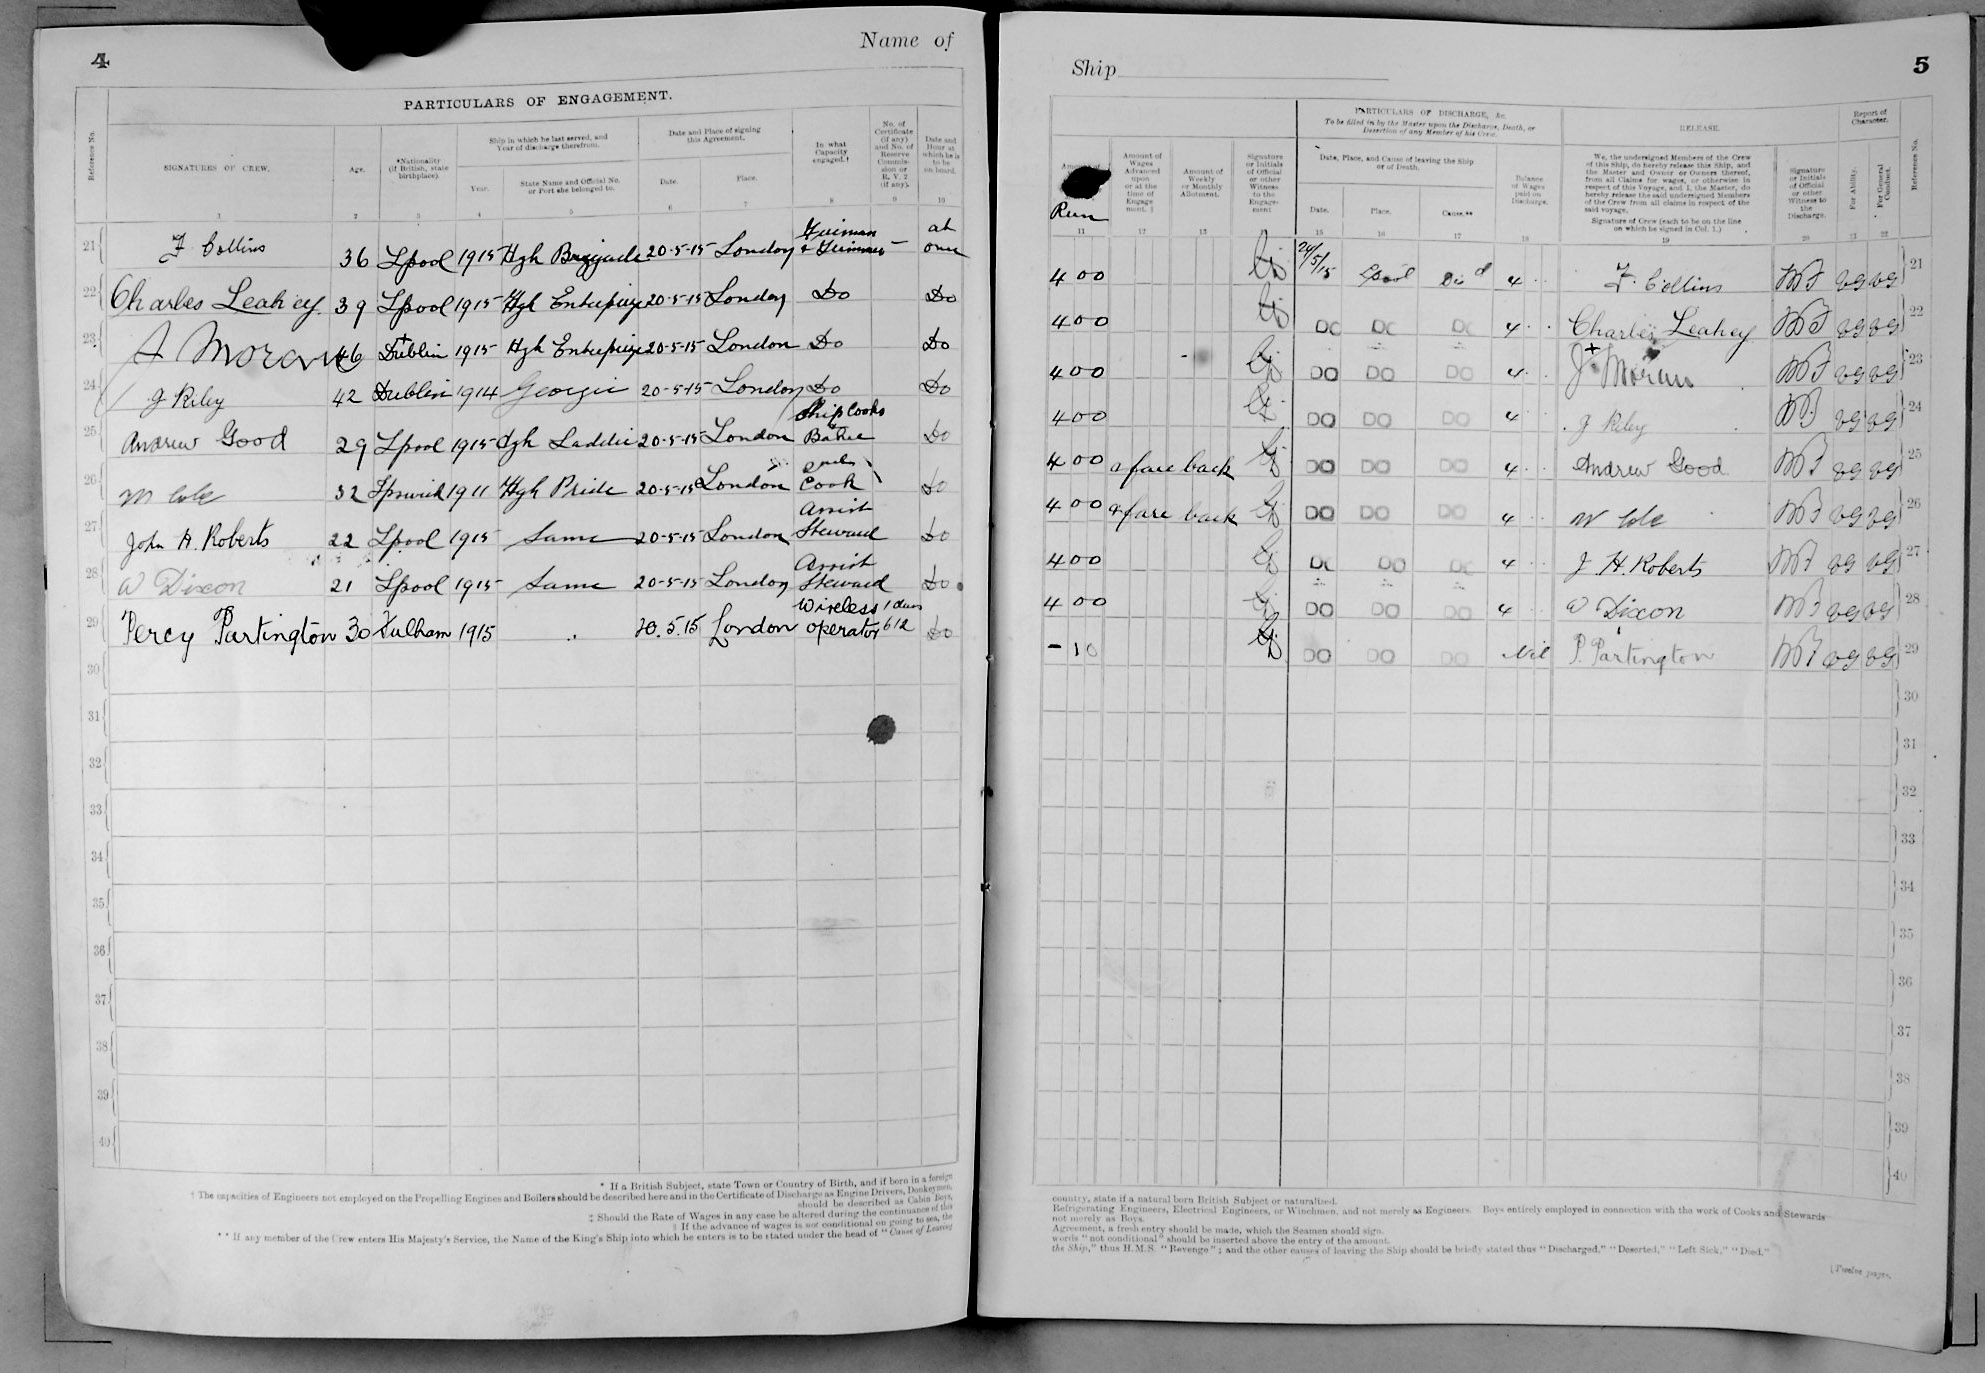 4
Name of
PARTICULARS OF ENGAGEMENT.
Reference No.
SIGNATURES OF CREW.
Age.
*Nationality (If British, state birthplace).
Ship in which he last served, and Year of discharge therefrom.
Year.
State Name and Official No. or Port she belonged to.
Date and Place of signing this Agreement.
Date.
Place.
In what Capacity engaged.†
No. of Certificate (if any) and No. of Reserve Commission or R. V. 2 (if any).
Date and Hour at which he is to be on board.
1 2 3 4 5 6 7 8 9 10
21 F Collins 36 Lpool 1915 Hgh Brigade 20-5-15 London Fireman & Trimmer – at once
22 Charles Leahey 39 Lpool 1915 Hgh Enterprize 20-5-15 London Do Do
23 J Moran 46 Dublin 1915 Hgh Enterprize 20-5-15 London Do Do
24 J Riley 42 Dublin 1914 Georgic 20-5-15 London Do Do
25 Andrew Good 29 Lpool 1915 Hgh Laddie 20-5-15 London Ship Cook & Baker Do
26 W Cole 32 Ipswich 1911 Hgh Pride 20-5-15 London Cook Do
27 John H. Roberts 22 Lpool 1915 Same 20-5-15 London Assist Steward Do
28 W Dixon 21 Lpool 1915 Same 20-5-15 London Assist Steward Do
29 Percy Partington 30 Fulham 1915 20.5.15 London Wireless operator 612 Do
30
31
32
33
34
35
36
37
38
39
40
* If a British Subject, state Town or Country of Birth, and if born in a foreign
† The capacities of Engineers not employed on the Propelling Engines and Boilers should be described here and in the Certificate of Discharge as Engine Drivers, Donkeymen,
should be described as Cabin Boys,
‡ Should the Rate of Wages in any case be altered during the continuance of this
§ If the advance of wages is not conditional on going to sea, the
** If any member of the Crew enters His Majesty's Service, the Name of the King's Ship into which he enters is to be stated under the head of "Cause of Leaving
Ship
5
PARTICULARS OF DISCHARGE, &c.
To be filled in by the Master upon the Discharge, Death, or Desertion of any Member of his Crew.
RELEASE.
Report of Character.
Reference No.
Amount of
Run
Amount of Wages Advanced upon or at the time of Engagement. §
Amount of Weekly or Monthly Allotment.
Signature or Initials of Official or other Witness to the Engagement
Date, Place, and Cause of leaving the Ship or of Death.
Date.
Place.
Cause.**
Balance of Wages paid on Discharge.
We, the undersigned Members of the Crew of this Ship, do hereby release this Ship, and the Master and Owner or Owners thereof, from all Claims for wages, or otherwise in respect of this Voyage, and I, the Master, do hereby release the said undersigned Members of the Crew from all claims in respect of the said voyage.
Signature of Crew (each to be on the line on which he signed in Col. 1.)
Signature or Initials of Official or other Witness to the Discharge.
For Ability.
For General Conduct.
11 12 13 14 15 16 17 18 19 20 21 22
4 0 0 24/5/15 Lpool Disd 4 F. Collins VG VG 21
4 0 0 DO DO DO 4 Charles Leahey VG VG 22
4 0 0 DO DO DO 4 J Moran VG VG 23
4 0 0 DO DO DO 4 J Riley VG VG 24
4 0 0 & fare back DO DO DO 4 Andrew Good VG VG 25
4 0 0 & fare back DO DO DO 4 W Cole VG VG 26
4 0 0 DO DO DO 4 J H. Roberts VG VG 27
4 0 0 DO DO DO 4 W Dixon VG VG 28
– 1 0 DO DO DO Nil P. Partington VG VG 29
30
31
32
33
34
35
36
37
38
39
40
country, state if a natural born British Subject or naturalized.
Refrigerating Engineers, Electrical Engineers, or Winchmen, and not merely as Engineers. Boys entirely employed in connection with the work of Cooks and Stewards
not merely as Boys.
Agreement, a fresh entry should be made, which the Seamen should sign.
words "not conditional" should be inserted above the entry of the amount.
the Ship," thus H.M.S. "Revenge"; and the other causes of leaving the Ship should be briefly stated thus "Discharged," "Deserted," "Left Sick," "Died."
[Twelve pages.